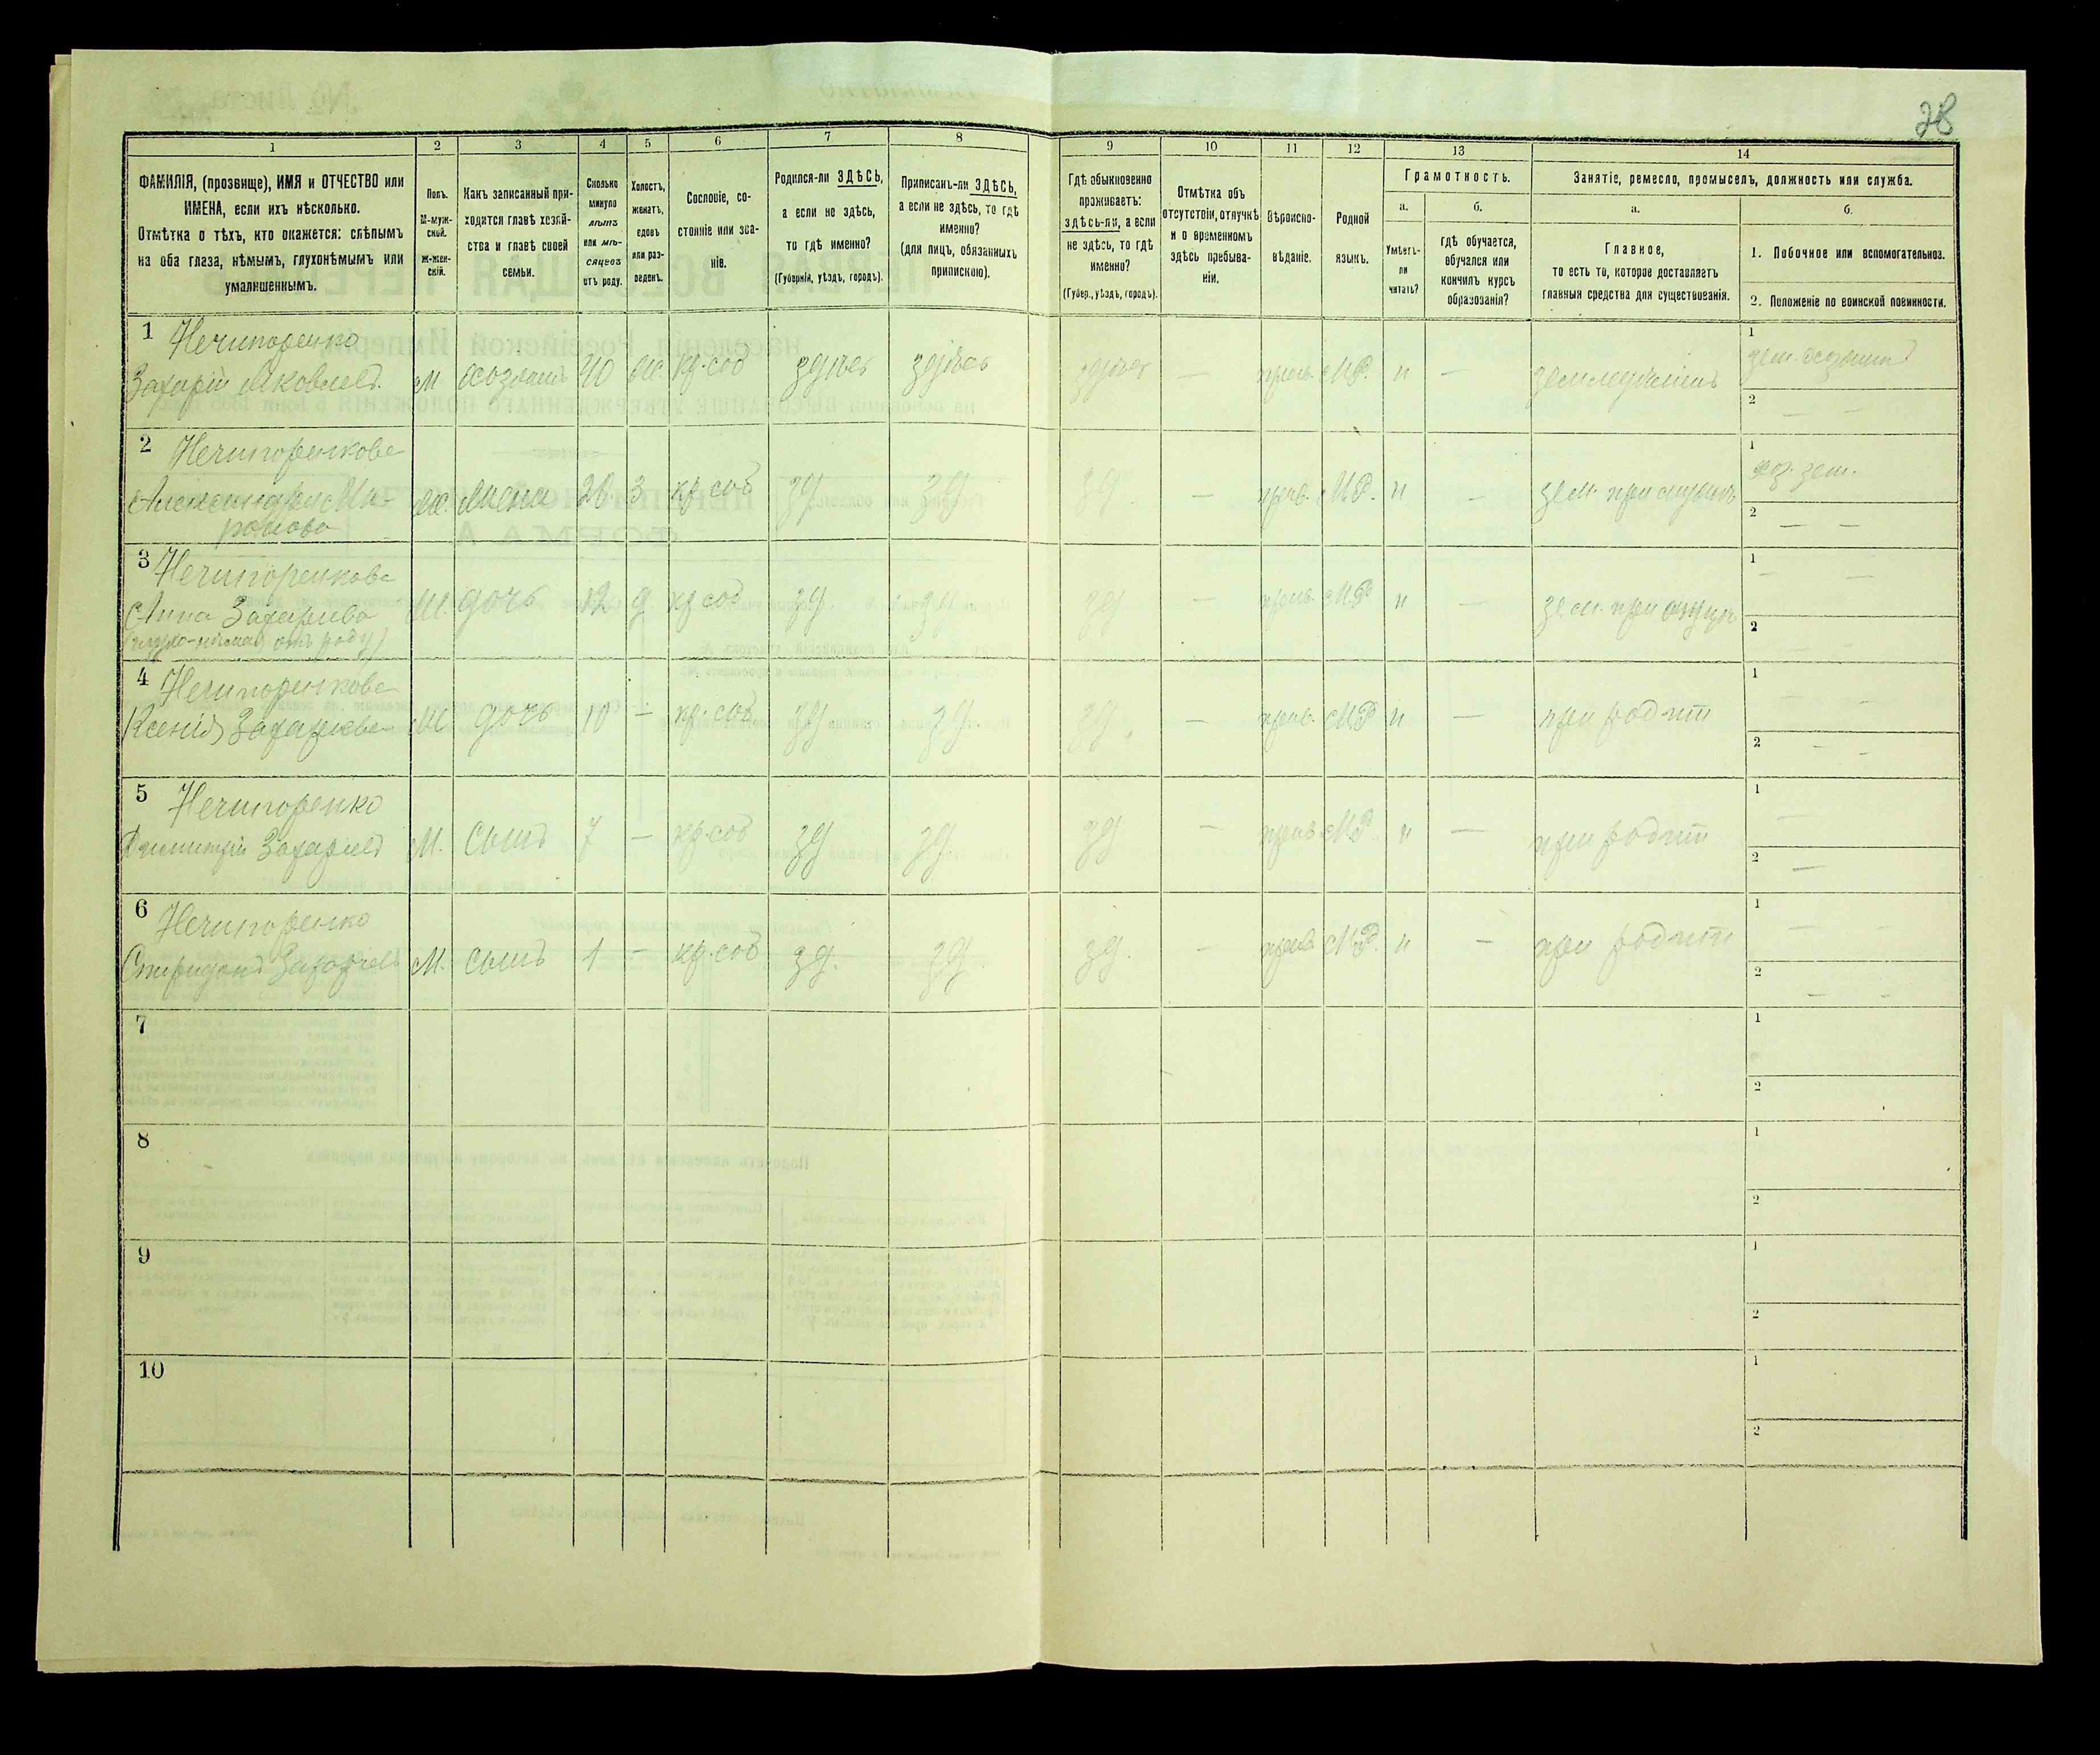 28
1
2
3
4
5
6
7
8
9
10
11
12
13
14
ФАМИЛІЯ, (прозвище), ИМЯ и ОТЧЕСТВО или
ИМЕНА, если ихъ нѣсколько.
Отмѣтка о тѣхъ, кто окажется: слѣпымъ
на оба глаза, нѣмымъ, глухонѣмымъ или
умалишеннымъ.
Полъ.
М-муж-
ской.
Ж-жен-
скій.
Какъ записанный при-
ходится главѣ хозяй-
ства и главѣ своей
семьи.
Сколько
минуло
лѣтъ
или мѣ-
сяцевъ
отъ роду.
Холостъ,
женатъ,
вдовъ
или раз-
веденъ.
Сословіе, со-
стояніе или зва-
ніе.
Родился-ли ЗДѢСЬ,
а если не здѣсь,
то гдѣ именно?
(Губернія, уѣздъ, городъ).
Приписанъ-ли ЗДѢСЬ,
а если не здѣсь, то гдѣ
именно?
(для лицъ, обязанныхъ
припискою).
Гдѣ обыкновенно
проживаетъ:
здѣсь-ли, а если
не здѣсь, то гдѣ
именно?
(Губер., уѣздъ, городъ).
Отмѣтка объ
отсутствіи, отлучкѣ
и о временномъ
здѣсь пребыва-
ніи.
Вѣроиспо-
вѣданіе.
Родной
языкъ.
Грамотность.
а.
Умѣетъ-
ли
читать?
б.
гдѣ обучается,
обучался или
кончилъ курсъ
образованія?
Занятіе, ремесло, промыселъ, должность или служба.
а.
Главное,
то есть то, которое доставляетъ
главныя средства для существованія.
б.
1. Побочное или вспомогательное.
2. Положеніе по воинской повинности.
1 Нечипоренко
Захарій Яковлевъ. м хозяинъ 40 ж. кр. соб здѣсь здѣсь здѣсь — прав. М.Р. н — земледѣлецъ
1
2 — —
2 Нечипоренкова
Александра Ми-
ронова ж. жена 3 кр. соб зд зд зд — прав. М.Р. н — зем. при мужѣ
1 хоз. зем.
2 — —
3 Нечипоренкова
Анна Захарьева дочь 12 д кр соб зд зд зд — прав. М.Р. н —
(глухо-нѣмая отъ роду)
1 — —
2 — —
4 Нечипоренкова
Ксенія Захарьева дочь 10 — кр. соб зд зд зд. — прав. М.Р. н — при родит
1 — —
2 — —
5 Нечипоренко
Димитрій Захарьевъ М. сынъ 7 — кр. соб зд зд зд — прав М.Р. н — при родит
1 —
2 —
6 Нечипоренко
Спиридонъ Захарьевъ М. сынъ 1 — кр. соб зд. зд. зд. — прав. М.Р. н — при родит
1 — —
2 — —
7
1
2
8
1
2
9
1
2
10
1
2